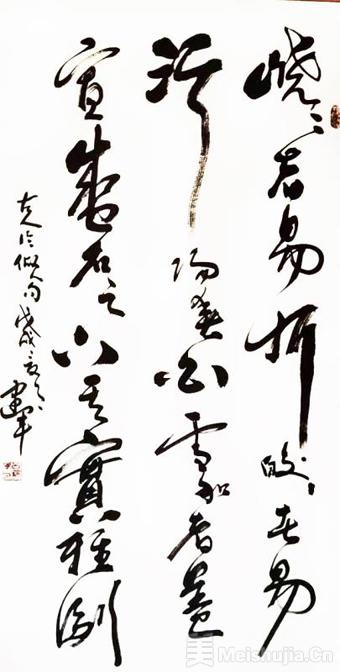 嶢々者易折皎々者易
污陽春白雪和者蓋
寡盛名之下其實難副
句戊戌
建军
美 Meishujia.Cn